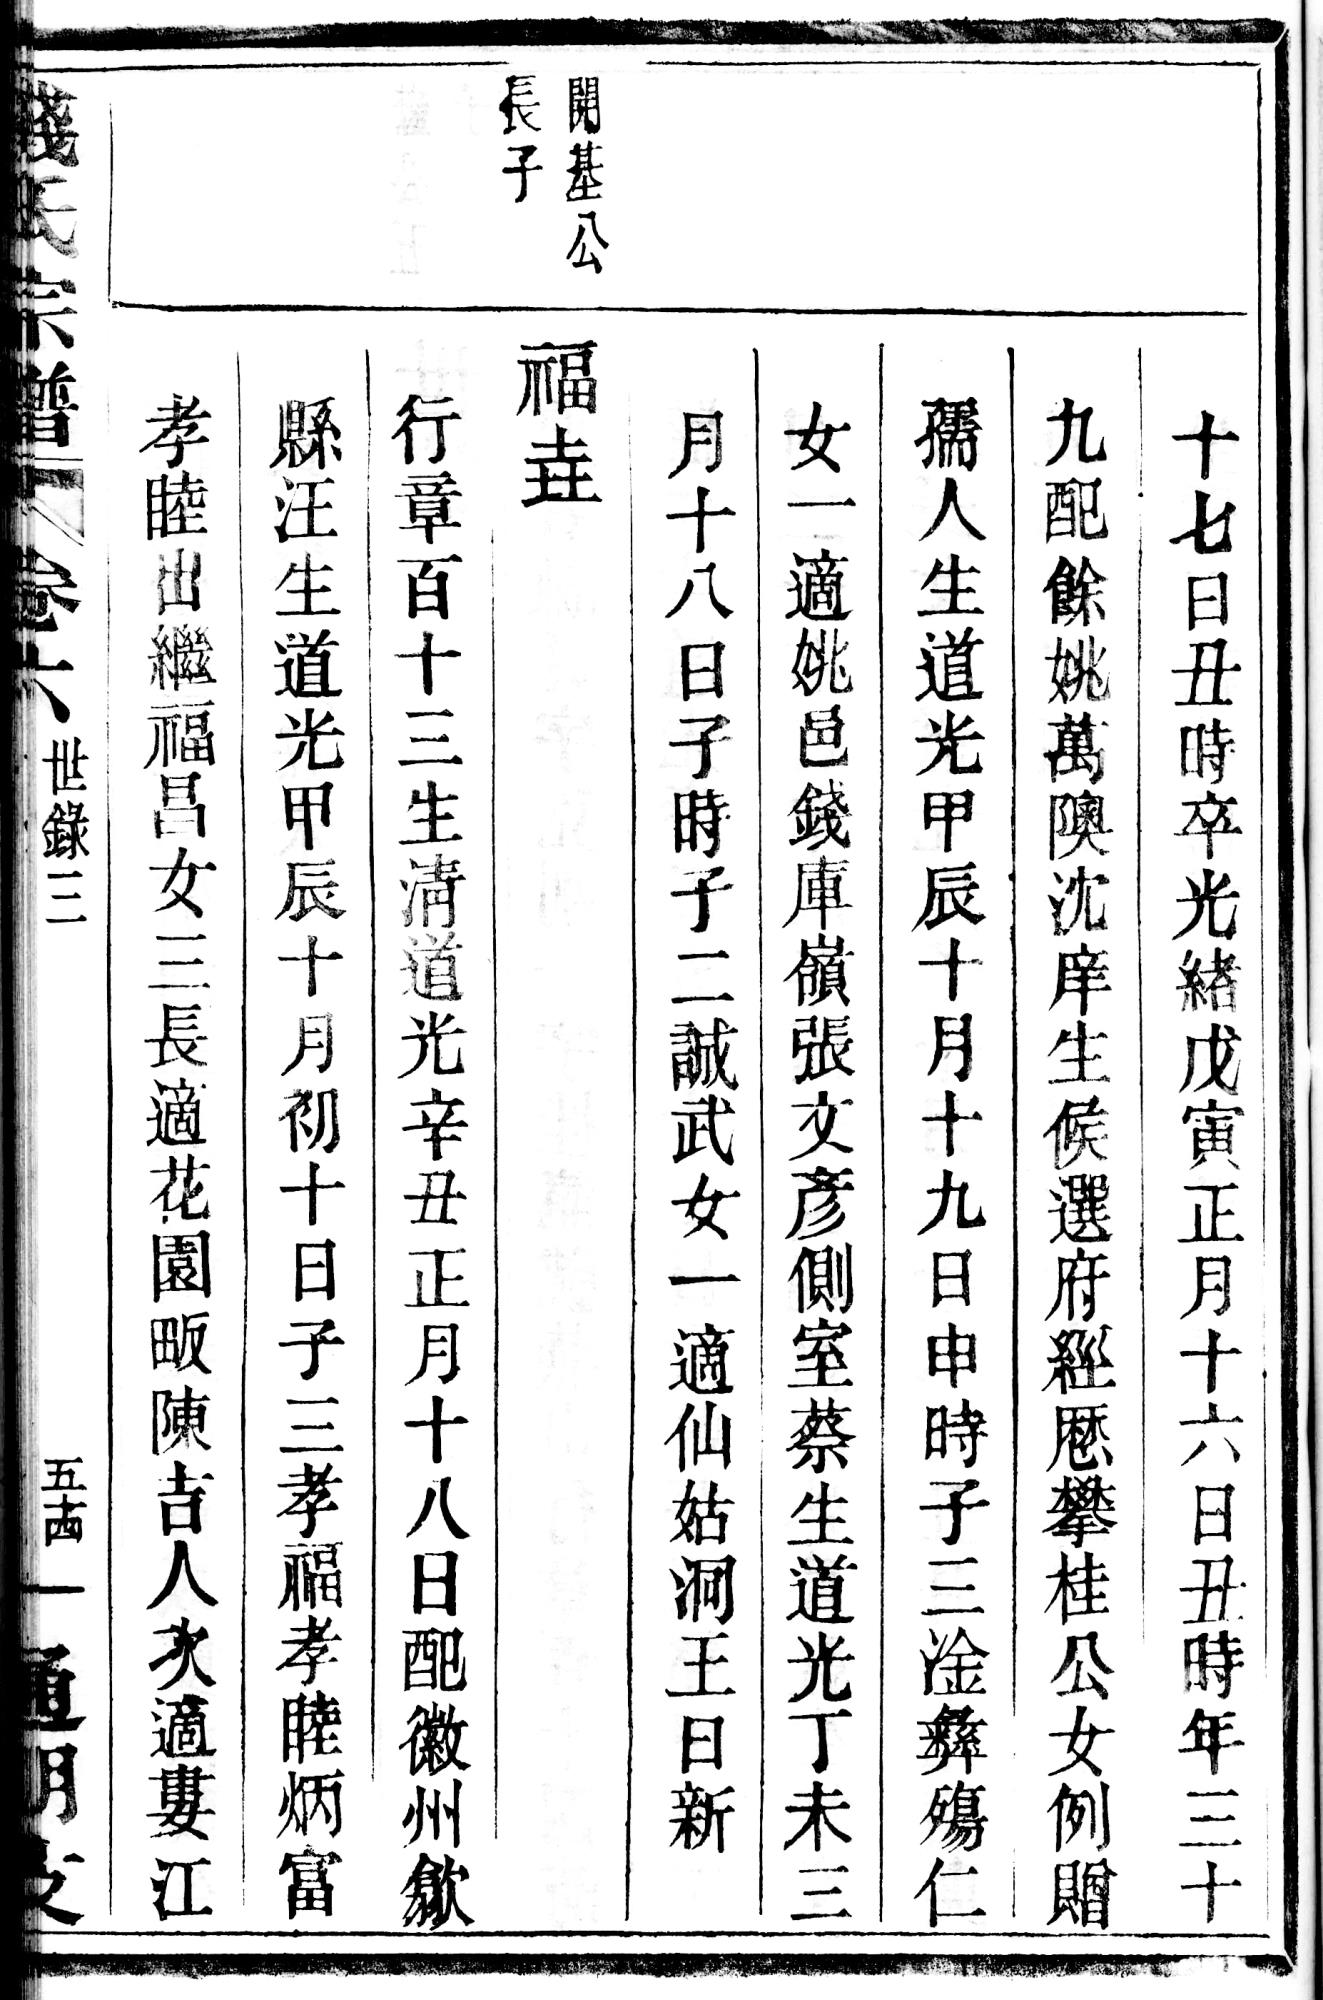 十七日丑時卒光緒戊寅正月十六日丑時年三十
九配餘姚萬隩沈庠生候選府經厯攀桂公女例贈
孺人生道光甲辰十月十九日申時子三淦彝殤仁
女一適姚邑錢庫嶺張文彥側室蔡生道光丁未三
月十八日子時子二誠武女一適仙姑洞王日新
開基公
長子
福壵
行章百十三生清道光辛丑正月十八日配徽州歙
縣汪生道光甲辰十月初十日子三孝福孝睦炳富
孝睦出繼福昌女三長適花園畈陳吉人次適婁江
錢氏宗譜
卷六
世錄三
五十四
通明支